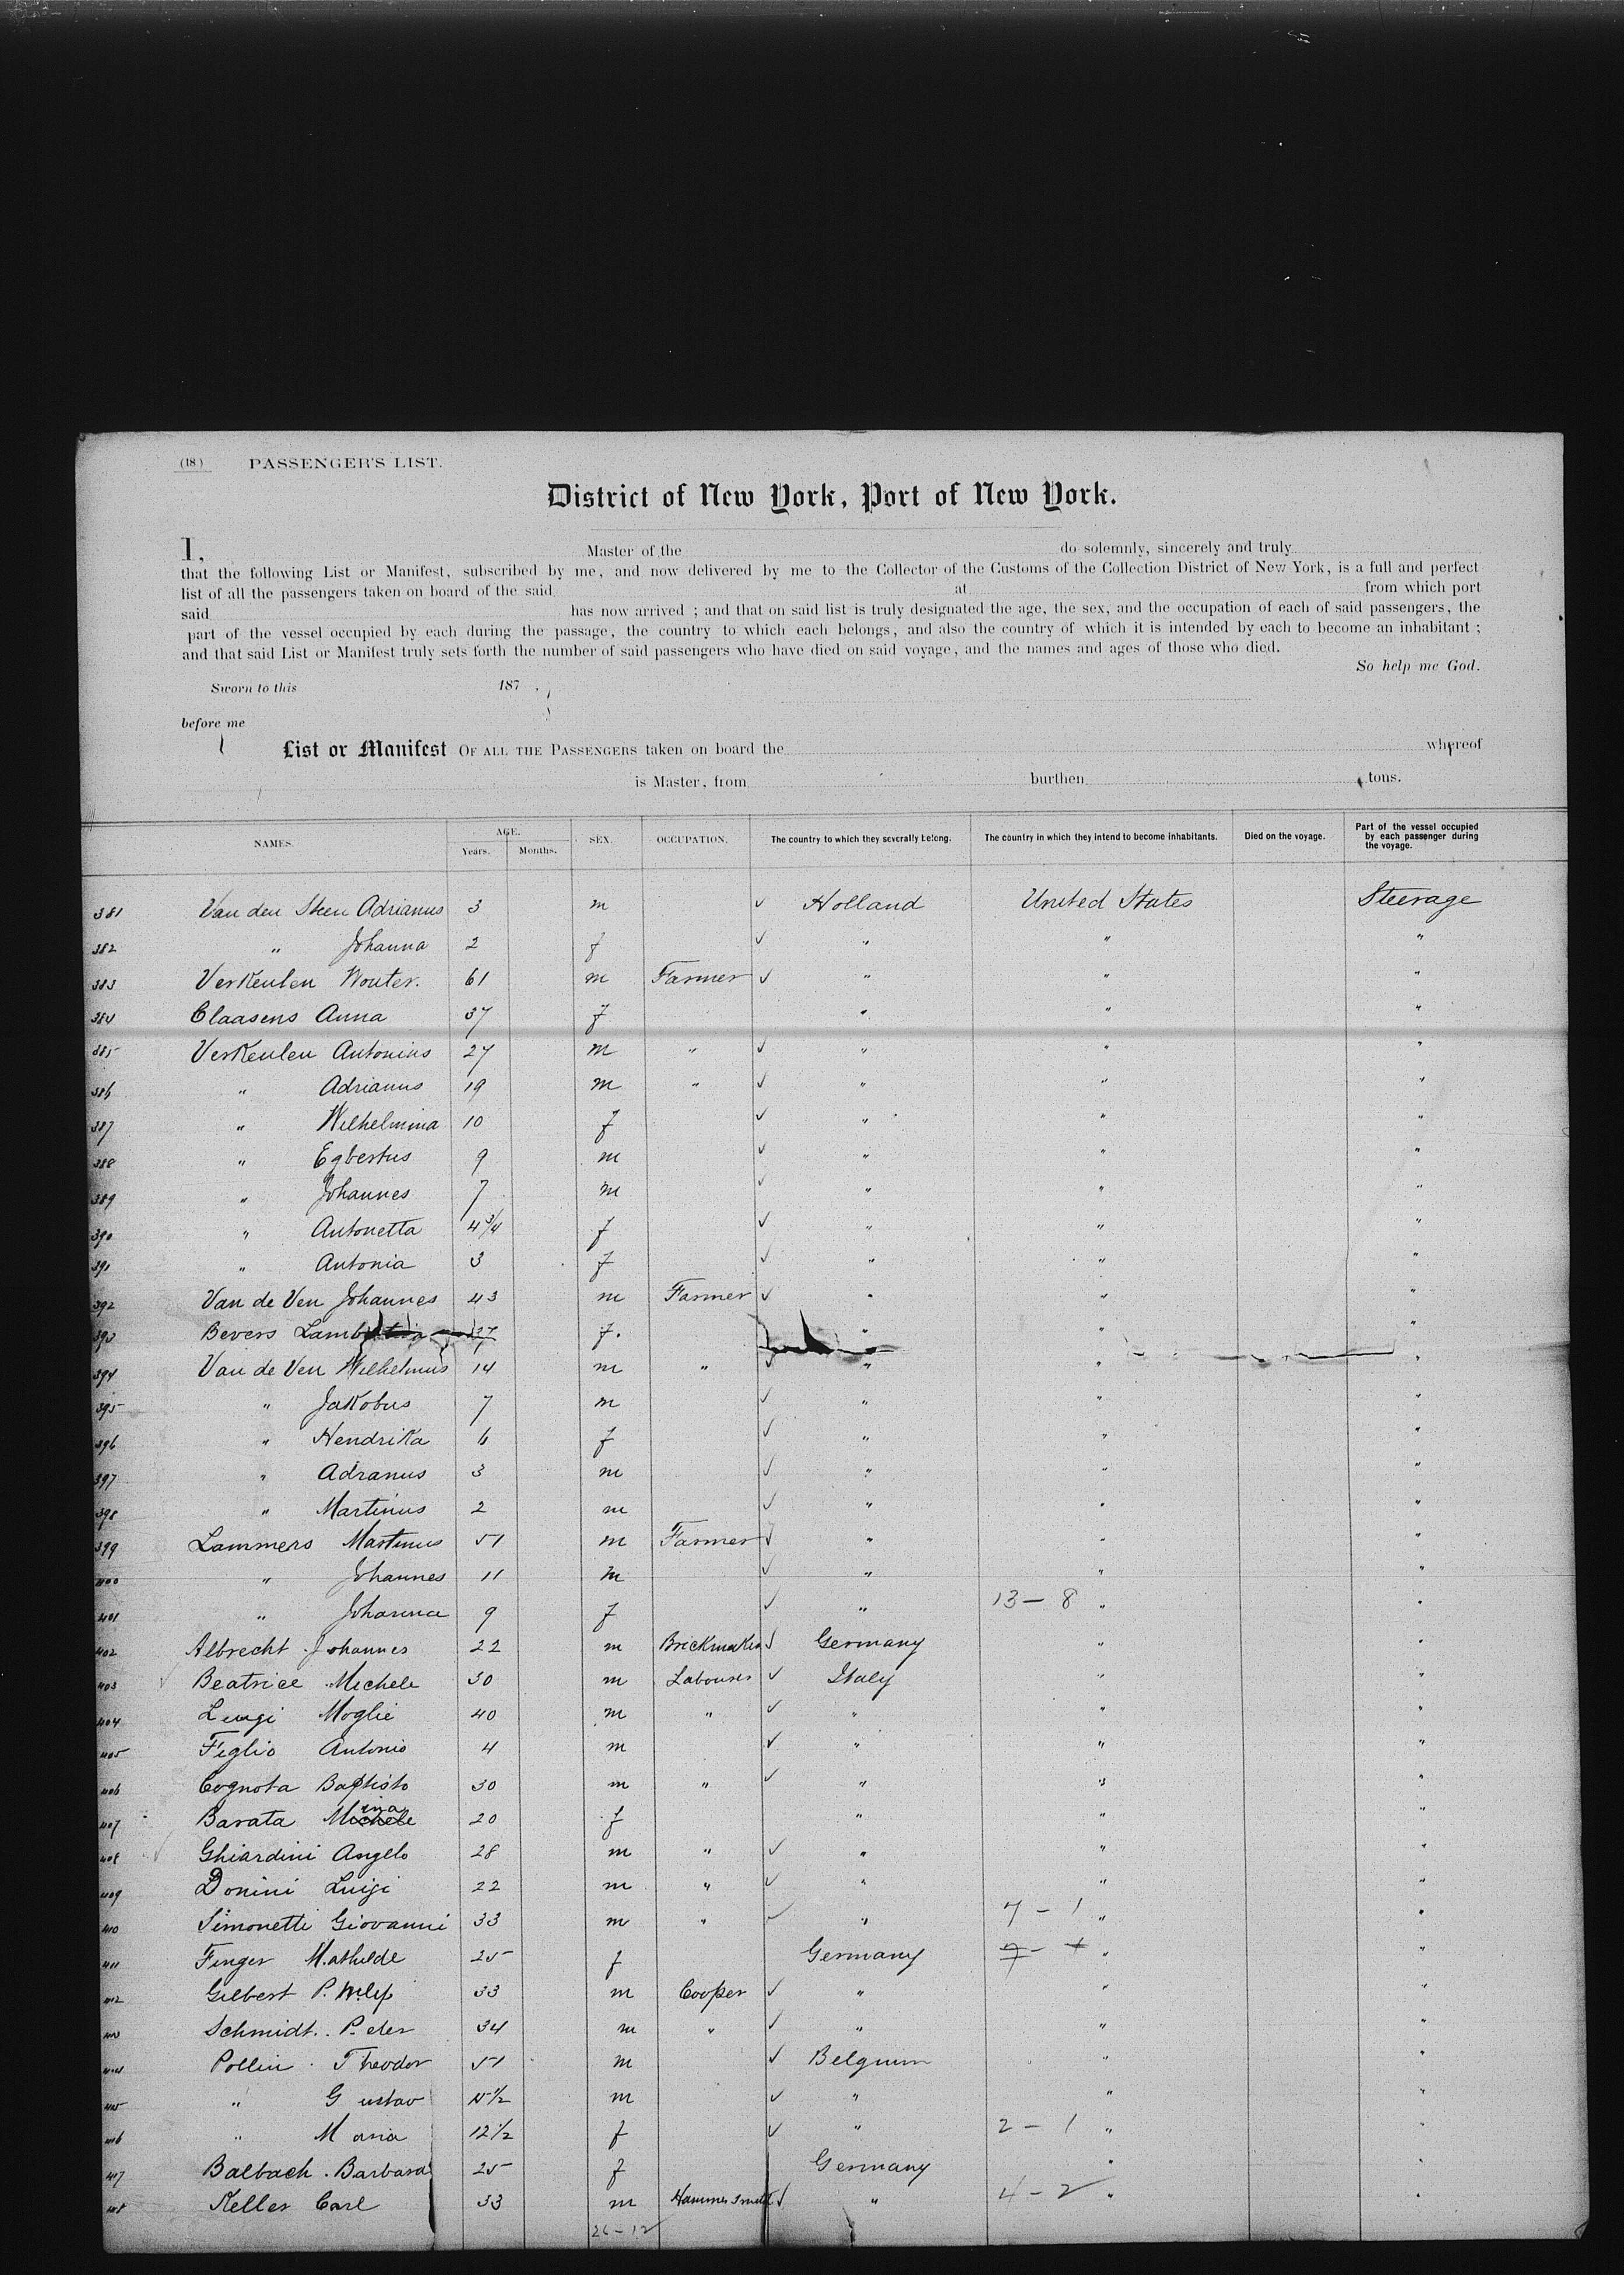 (18) PASSENGER'S LIST.
District of New York, Port of New York.
I, Master of the do solemnly, sincerely and truly
that the following List or Manifest, subscribed by me, and now delivered by me to the Collector of the Customs of the Collection District of New York, is a full and perfect
list of all the passengers taken on board of the said at from which port
said has now arrived ; and that on said list is truly designated the age, the sex, and the occupation of each of said passengers, the
part of the vessel occupied by each during the passage, the country to which each belongs, and also the country of which it is intended by each to become an inhabitant ;
and that said List or Manifest truly sets forth the number of said passengers who have died on said voyage, and the names and ages of those who died.
So help me God.
Sworn to this 187 ,
before me
List or Manifest OF ALL THE PASSENGERS taken on board the whereof
is Master, from burthen tons.
NAMES. AGE. Years. Months. SEX. OCCUPATION. The country to which they severally belong. The country in which they intend to become inhabitants. Died on the voyage. Part of the vessel occupied by each passenger during the voyage.
381 Van den Steen Adrianus 3 m ✓ Holland United States Steerage
382 " Johanna 2 f ✓ " " "
383 VerKeulen Wouter. 61 m Farmer ✓ " " "
384 Claasens Anna 37 f " " "
385 VerKeulen Antonius 27 m " ✓ " " "
386 " Adrianus 19 m " ✓ " " "
387 " Wilhelmina 10 f ✓ " " "
388 " Egbertus 9 m ✓ " " "
389 " Johannes 7 m ✓ " " "
390 " Antonetta 4 3/4 f ✓ " " "
391 " Antonia 3 f ✓ " " "
392 Van de Ven Johannes 43 m Farmer ✓ " " "
393 Bevers 37 f. " " "
394 Van de Ven Wilhelmus 14 m " ✓ " " "
395 " JaKobus 7 m ✓ " " "
396 " HendriKa 6 f ✓ " " "
397 " Adranus 3 m ✓ " " "
398 " Martinus 2 m ✓ " " "
399 Lammers Martinus 51 m Farmer ✓ " " "
400 " Johannes 11 m ✓ " " "
401 " Johanna 9 f ✓ " 13 - 8 " "
402 Albrecht Johannes 22 m Brickmaker ✓ Germany " "
403 Beatrice Michele 30 m Labourer ✓ Italy " "
404 Luigi Moglie 40 m " ✓ " " "
405 Figlio Antonio 4 m ✓ " " "
406 Cognota Baptisto 30 m " ✓ " " "
407 Barata Michele ina 20 f " " "
408 Ghiardini Angelo 28 m " ✓ " " "
409 Donini Luigi 22 m " ✓ " " "
410 Simonetti Giovanni 33 m " ✓ " 7 - 1 " "
411 Finger Mathilde 25 f Germany 7 - 1 " "
412 Gilbert Philip 33 m Cooper ✓ " " "
413 Schmidt. Peter 34 m " ✓ " " "
414 Pollin Theodor 51 m ✓ Belgium " "
415 " Gustav 15 1/2 m ✓ " " "
416 " Maria 12 1/2 f ✓ " 2 - 1 " "
417 Balbach. Barbara 25 f Germany " "
418 Keller Carl 33 m Hammersmith ✓ " 4 - 2 " "
26 - 12